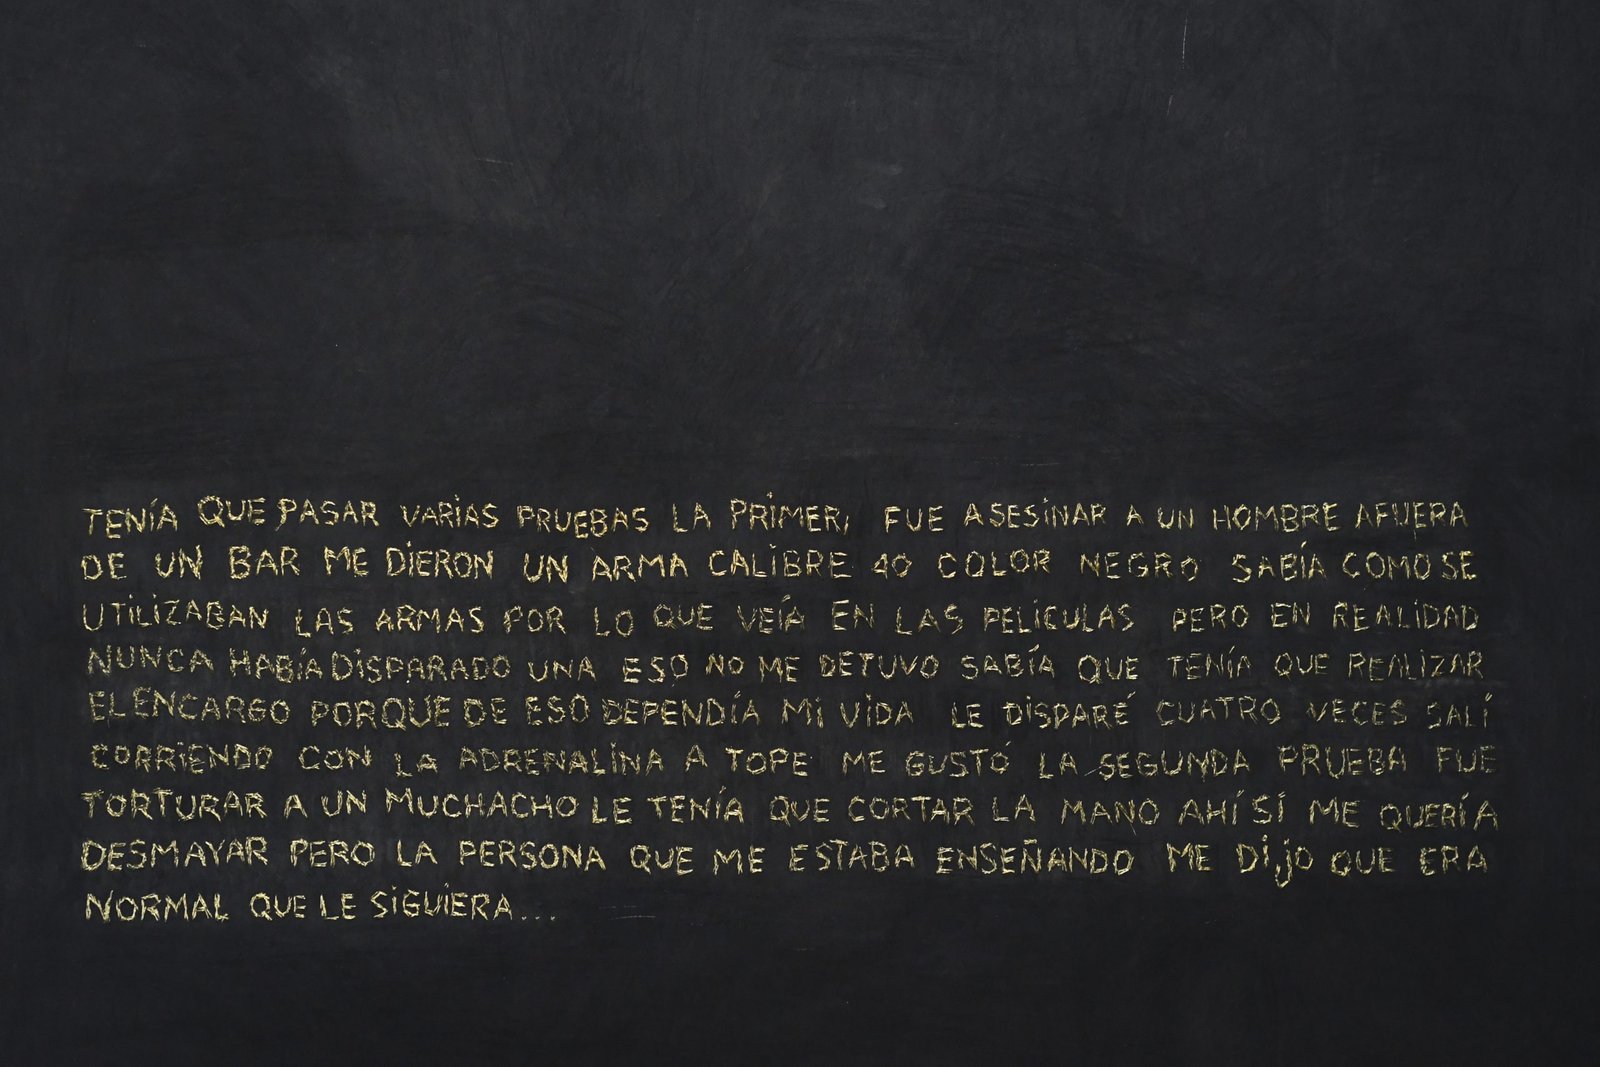 TENÍA QUE PASAR VARIAS PRUEBAS LA PRIMER, FUE ASESINAR A UN HOMBRE AFUERA
DE UN BAR ME DIERON UN ARMA CALIBRE 40 COLOR NEGRO SABÍA COMO SE
UTILIZABAN LAS ARMAS POR LO QUE VEÍA EN LAS PELICULAS PERO EN REALIDAD
NUNCA HABÍA DISPARADO UNA ESO NO ME DETUVO SABÍA QUE TENÍA QUE REALIZAR
EL ENCARGO PORQUE DE ESO DEPENDÍA MI VIDA LE DISPARÉ CUATRO VECES SALÍ
CORRIENDO CON LA ADRENALINA A TOPE ME GUSTÓ LA SEGUNDA PRUEBA FUE
TORTURAR A UN MUCHACHO LE TENÍA QUE CORTAR LA MANO AHÍ SÍ ME QUERÍA
DESMAYAR PERO LA PERSONA QUE ME ESTABA ENSEÑANDO ME DIJO QUE ERA
NORMAL QUE LE SIGUIERA...